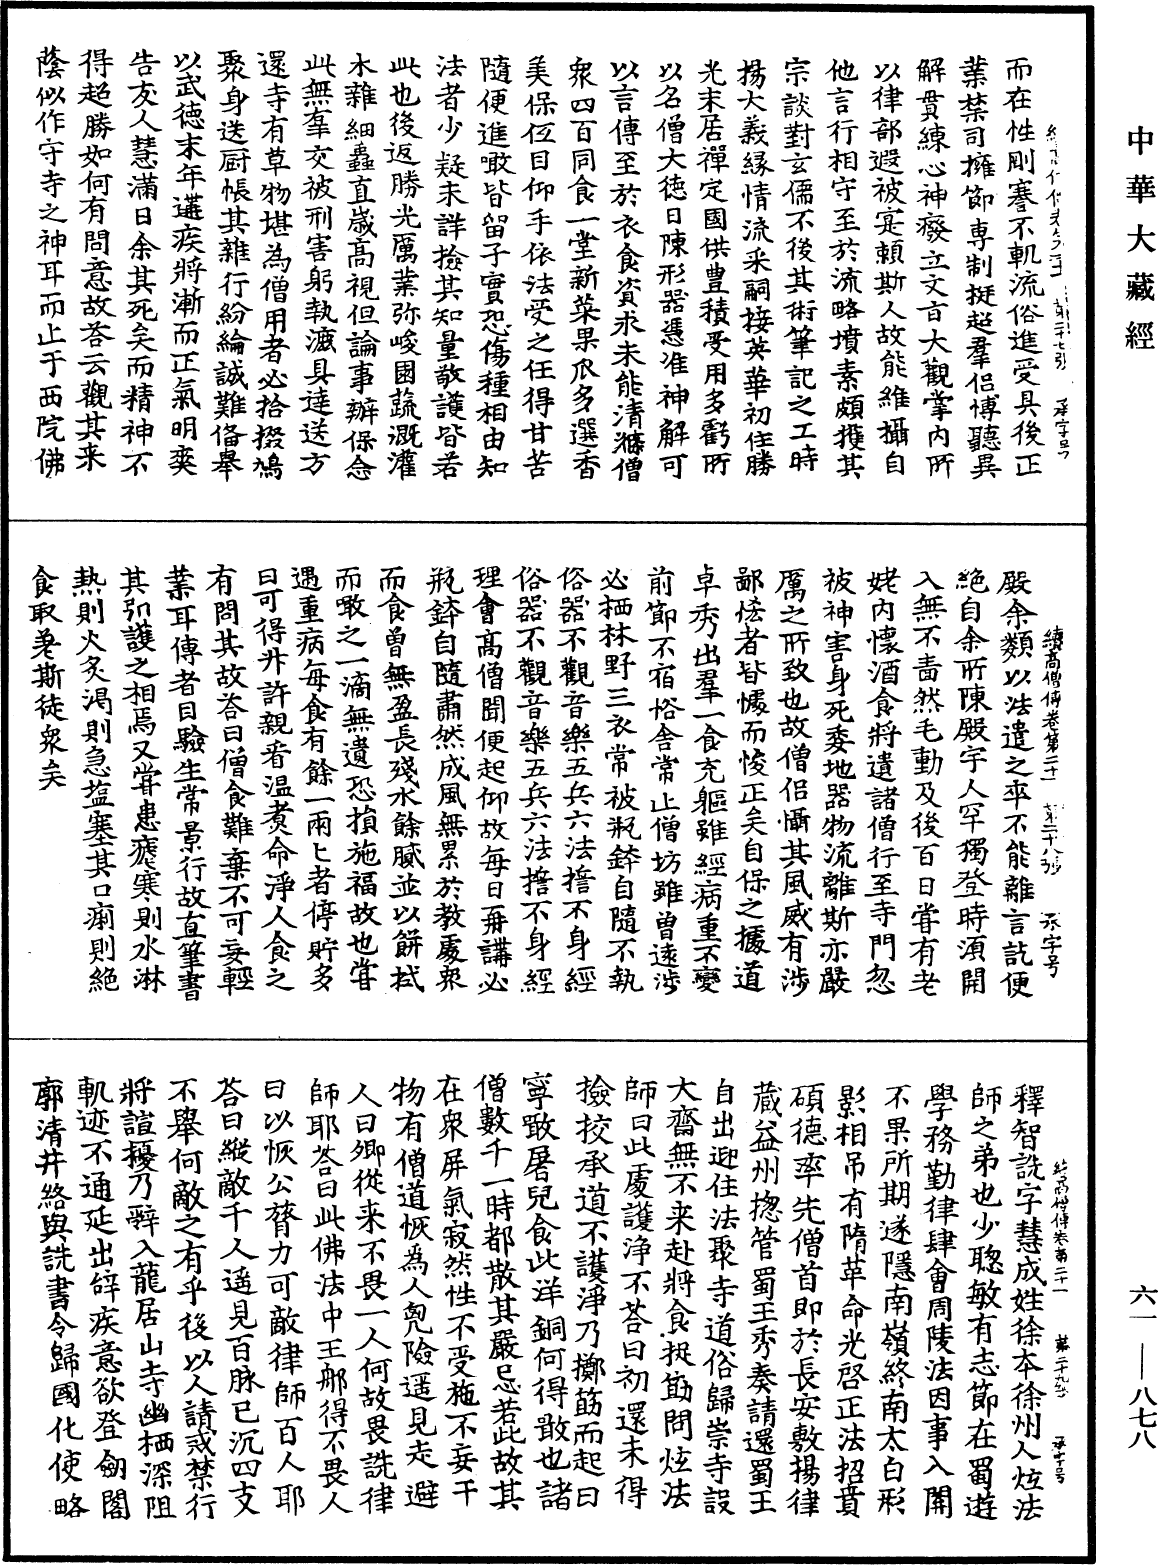 中華大藏經
而在性剛謇不軌流俗進受具後正
業禁司擁節専制挺超羣侣博聽異
解貫練心神癈立文旨大觀掌内所
以律部遐被寔頼斯人故能維攝自
他言行相守至於流略墳素頗獲其
宗談對玄儒不後其術筆記之工時
揚大義緣情流采嗣接英華初住勝
光末居禪定國供豊積受用多虧所
以名僧大德日陳形器憑准神解可
以言傳至於衣食資求未能清滌僧
衆四百同食一堂新菜果瓜多選香
美保伍目仰手依法受之任得甘苦
隨便進噉皆留子實恐傷種相由知
法者少疑未詳撿其知量敬護皆若
此也後返勝光厲業弥峻園蔬溉灌
水雜細蟲直歲高視但論事辦保念
此無辜交被刑害躬執漉具達送方
還寺有草物堪為僧用者必拾掇鳩
聚身送厨帳其雜行紛綸誠難俻舉
以武德末年遘疾將漸而正氣明爽
告友人慧滿日余其死矣而精神不
得超勝如何有問意故荅云觀其来
蔭似作守寺之神耳而止于西院佛
續高僧傳卷第二十一 第二十八張 承字号
殿余類以法遣之卒不能離言訖便
絶自余所陳殿宇人罕獨登時湏開
入無不嗇然毛動及後百日嘗有老
姥内懷酒食將遺諸僧行至寺門忽
被神害身死委地器物流離斯亦嚴
厲之所致也故僧侣懾其風威有涉
鄙悋者皆懅而悛正矣自保之據道
卓秀出羣一食充軀雖經病重不變
前節不宿俗舎常止僧坊雖曽遠涉
必栖林野三衣常被瓶鉢自隨不執
俗器不觀音樂五兵六法擔不身經
俗器不觀音樂五兵六法擔不身經
理會高僧聞便起仰故每日再講必
瓶鉢自隨肅然成風無累於教處衆
而食曽無盈長殘水餘膩並以餅拭
而噉之一滴無遺恐損施福故也甞
遇重病每食有餘一兩匕者停貯多
日可得升許親看温煑命淨人食之
有問其故荅曰僧食難棄不可妄輕
業耳傳者目驗生常景行故直筆書
其弘護之相焉又甞患瘧寒則水淋
熱則火炙渴則急塩塞其口痢則絶
食取差斯徒衆矣
續高僧傳卷第二十一 第二十九張 承字号
釋智詵字慧成姓徐本徐州人炫法
師之弟也少聦敏有志節在蜀遊
學務勤律肆會周陵法因事入關
不果所期遂隱南嶺終南太白形
影相吊有隋革命光啓正法招貢
碩德率先僧首即於長安敷揚律
藏益州揔管蜀王秀奏請還蜀王
自出迎住法聚寺道俗歸崇寺設
大齋無不来赴將食捉匙問炫法
師曰此處護浄不荅曰初還未得
撿挍承道不護淨乃擲筯而起曰
寧噉屠兒食此洋銅何得敢也諸
僧數千一時都散其嚴忌若此故其
在衆屏氣寂然性不受施不妄干
物有僧道恢為人兇險遥見走避
人曰卿從来不畏一人何故畏詵律
師耶荅曰此佛法中王那得不畏人
曰以恢公膂力可敵律師百人耶
荅曰縱敵千人遥見百脉已沉四支
不舉何敵之有乎後以人請或禁行
將諠擾乃辭入龍居山寺幽栖深阻
軌迹不通延出辝疾意欲登劒閣
廓清井絡與詵書令歸國化使略
六一——八七八